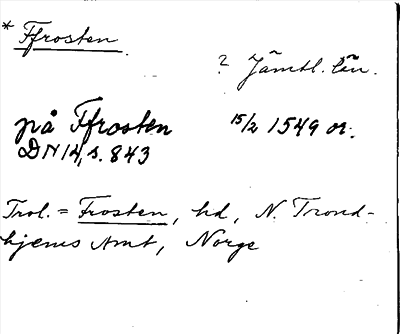 * Ffrosten.
? Jämtl. län.
på Ffrosten 15/2 1549 or.
DN 14, s. 843
Trol. = Frosten, hd, N. Trond-
hjems Amt, Norge